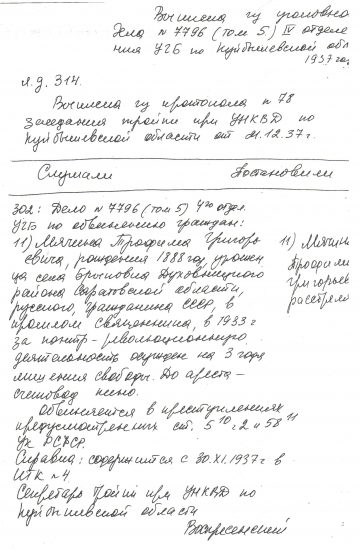 Выписка из уголовно
Дела N 7796 (том 5) IV отделе
ния УГБ по Куйбышевской обл
1937 год
л.д. 314.
Выписка из протокола N 78
заседания тройки при УНКВД по
Куйбышевской области от 21.12.37г.
Слушали Постановили
302: Дело N 7796 (том 5) 4го отдел.
УГБ по обвинению граждан:
11) Мягкина Трофима Григорь 11) Мягкин
евича, рождения 1888 год, урожен Трофим
ца села Брыковка Духовницкого Григорьев
района Саратовской области, расстрел
русского, гражданина СССР, в
прошлом священника, в 1933 г
за контр-революционную
деятельность осужден на 3 года
лишения свободы. До ареста -
счетовод
Обвиняется в преступлениях
предусмотренных ст. 58 11
УК РСФСР.
Справка: содержится с 30.XI.1937г в
ИТК N 4
Секретарь Тройки при УНКВД по
Куйбышевской области
Воскресенский